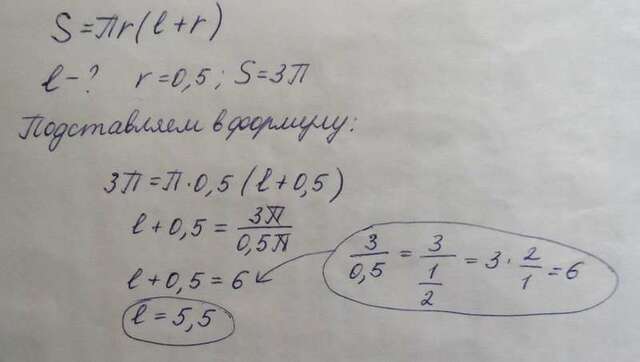 S=πr(l+r)
l-? r=0,5; S=3π
Подставляем в формулу:
3π=π·0,5(l+0,5)
l+0,5=3π/0,5π
l+0,5=6
l=5,5
3/0,5=3/(1/2)=3·2/1=6